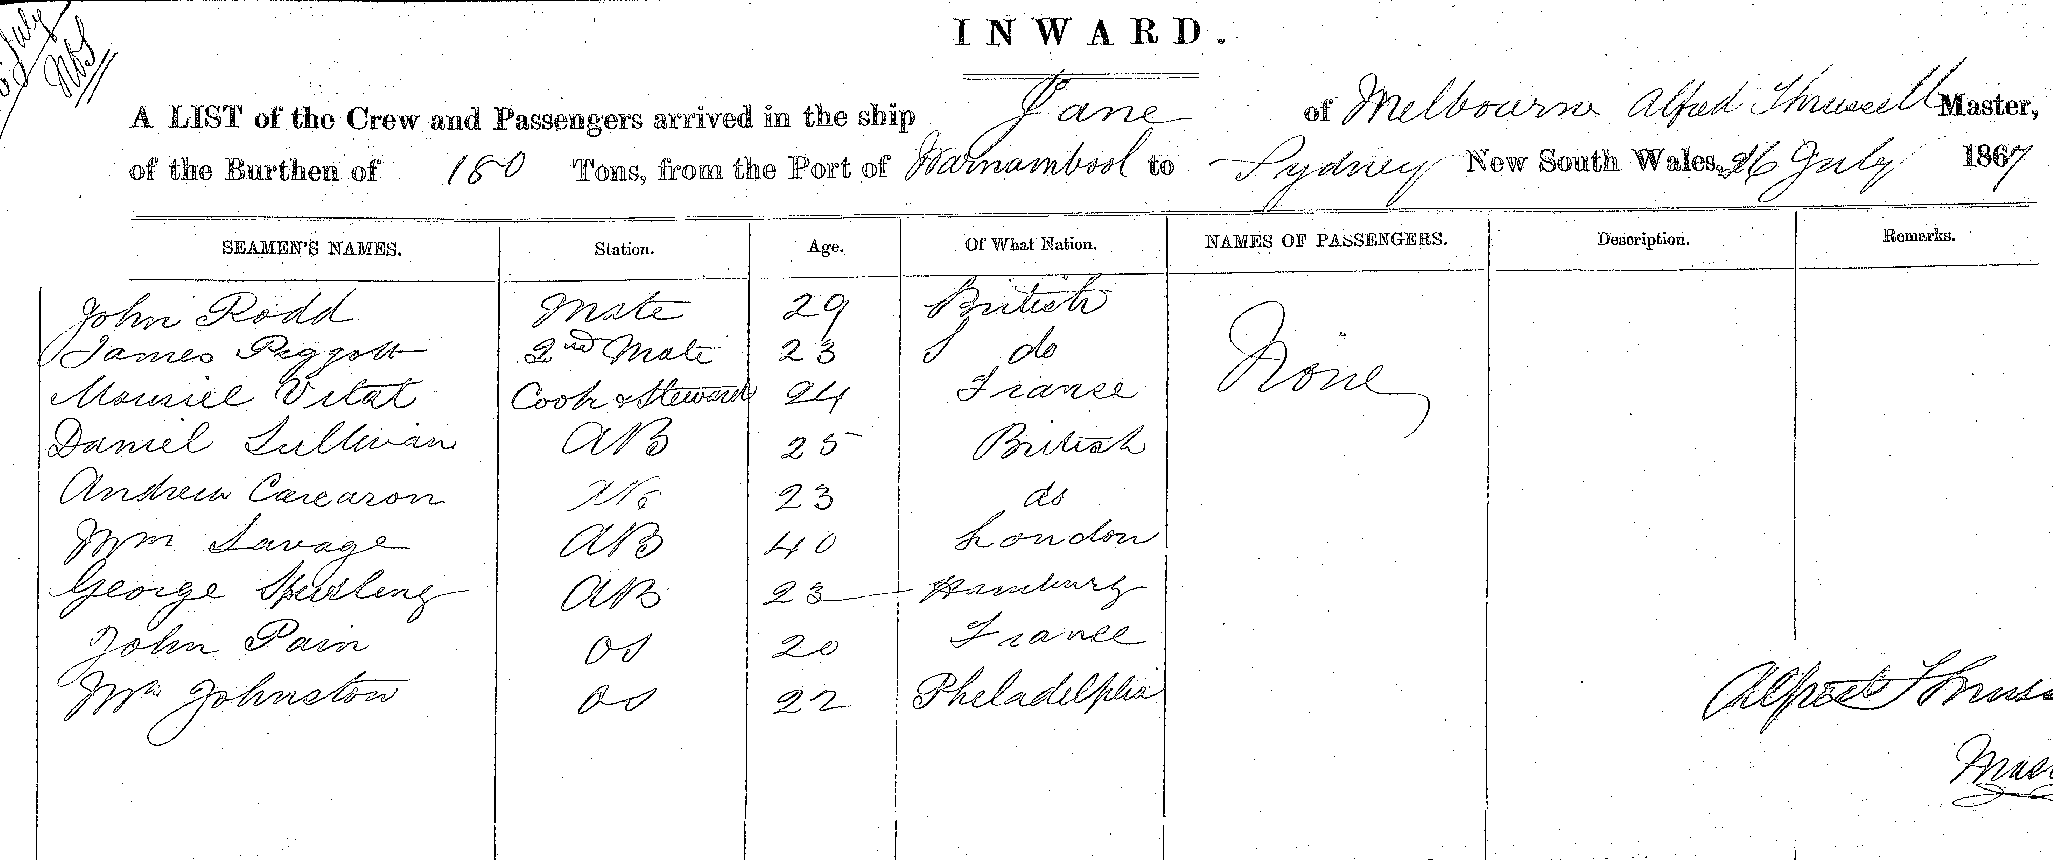 July
INWARD.
A LIST of the Crew and Passengers arrived in the ship Jane of Melbourne Alfred Thrussell Master,
of the Burthen of 180 Tons, from the Port of Warnambool to Sydney New South Wales, 26 July 1867
SEAMEN'S NAMES. Station. Age. Of What Nation. NAMES OF PASSENGERS. Description. Remarks.
John Rodd Mate 29 British None
James Piggott 2nd Mate 23 do
Vitat Cook & Steward 24 France
Daniel Sullivan AB 25 British
Andrew 23 do
Wm Savage AB 40 London
George AB 23 Hamburg
John Pain OS 20 France
Wm Johnston OS 22 Pheladelphia
Alfred Thruss
Mas